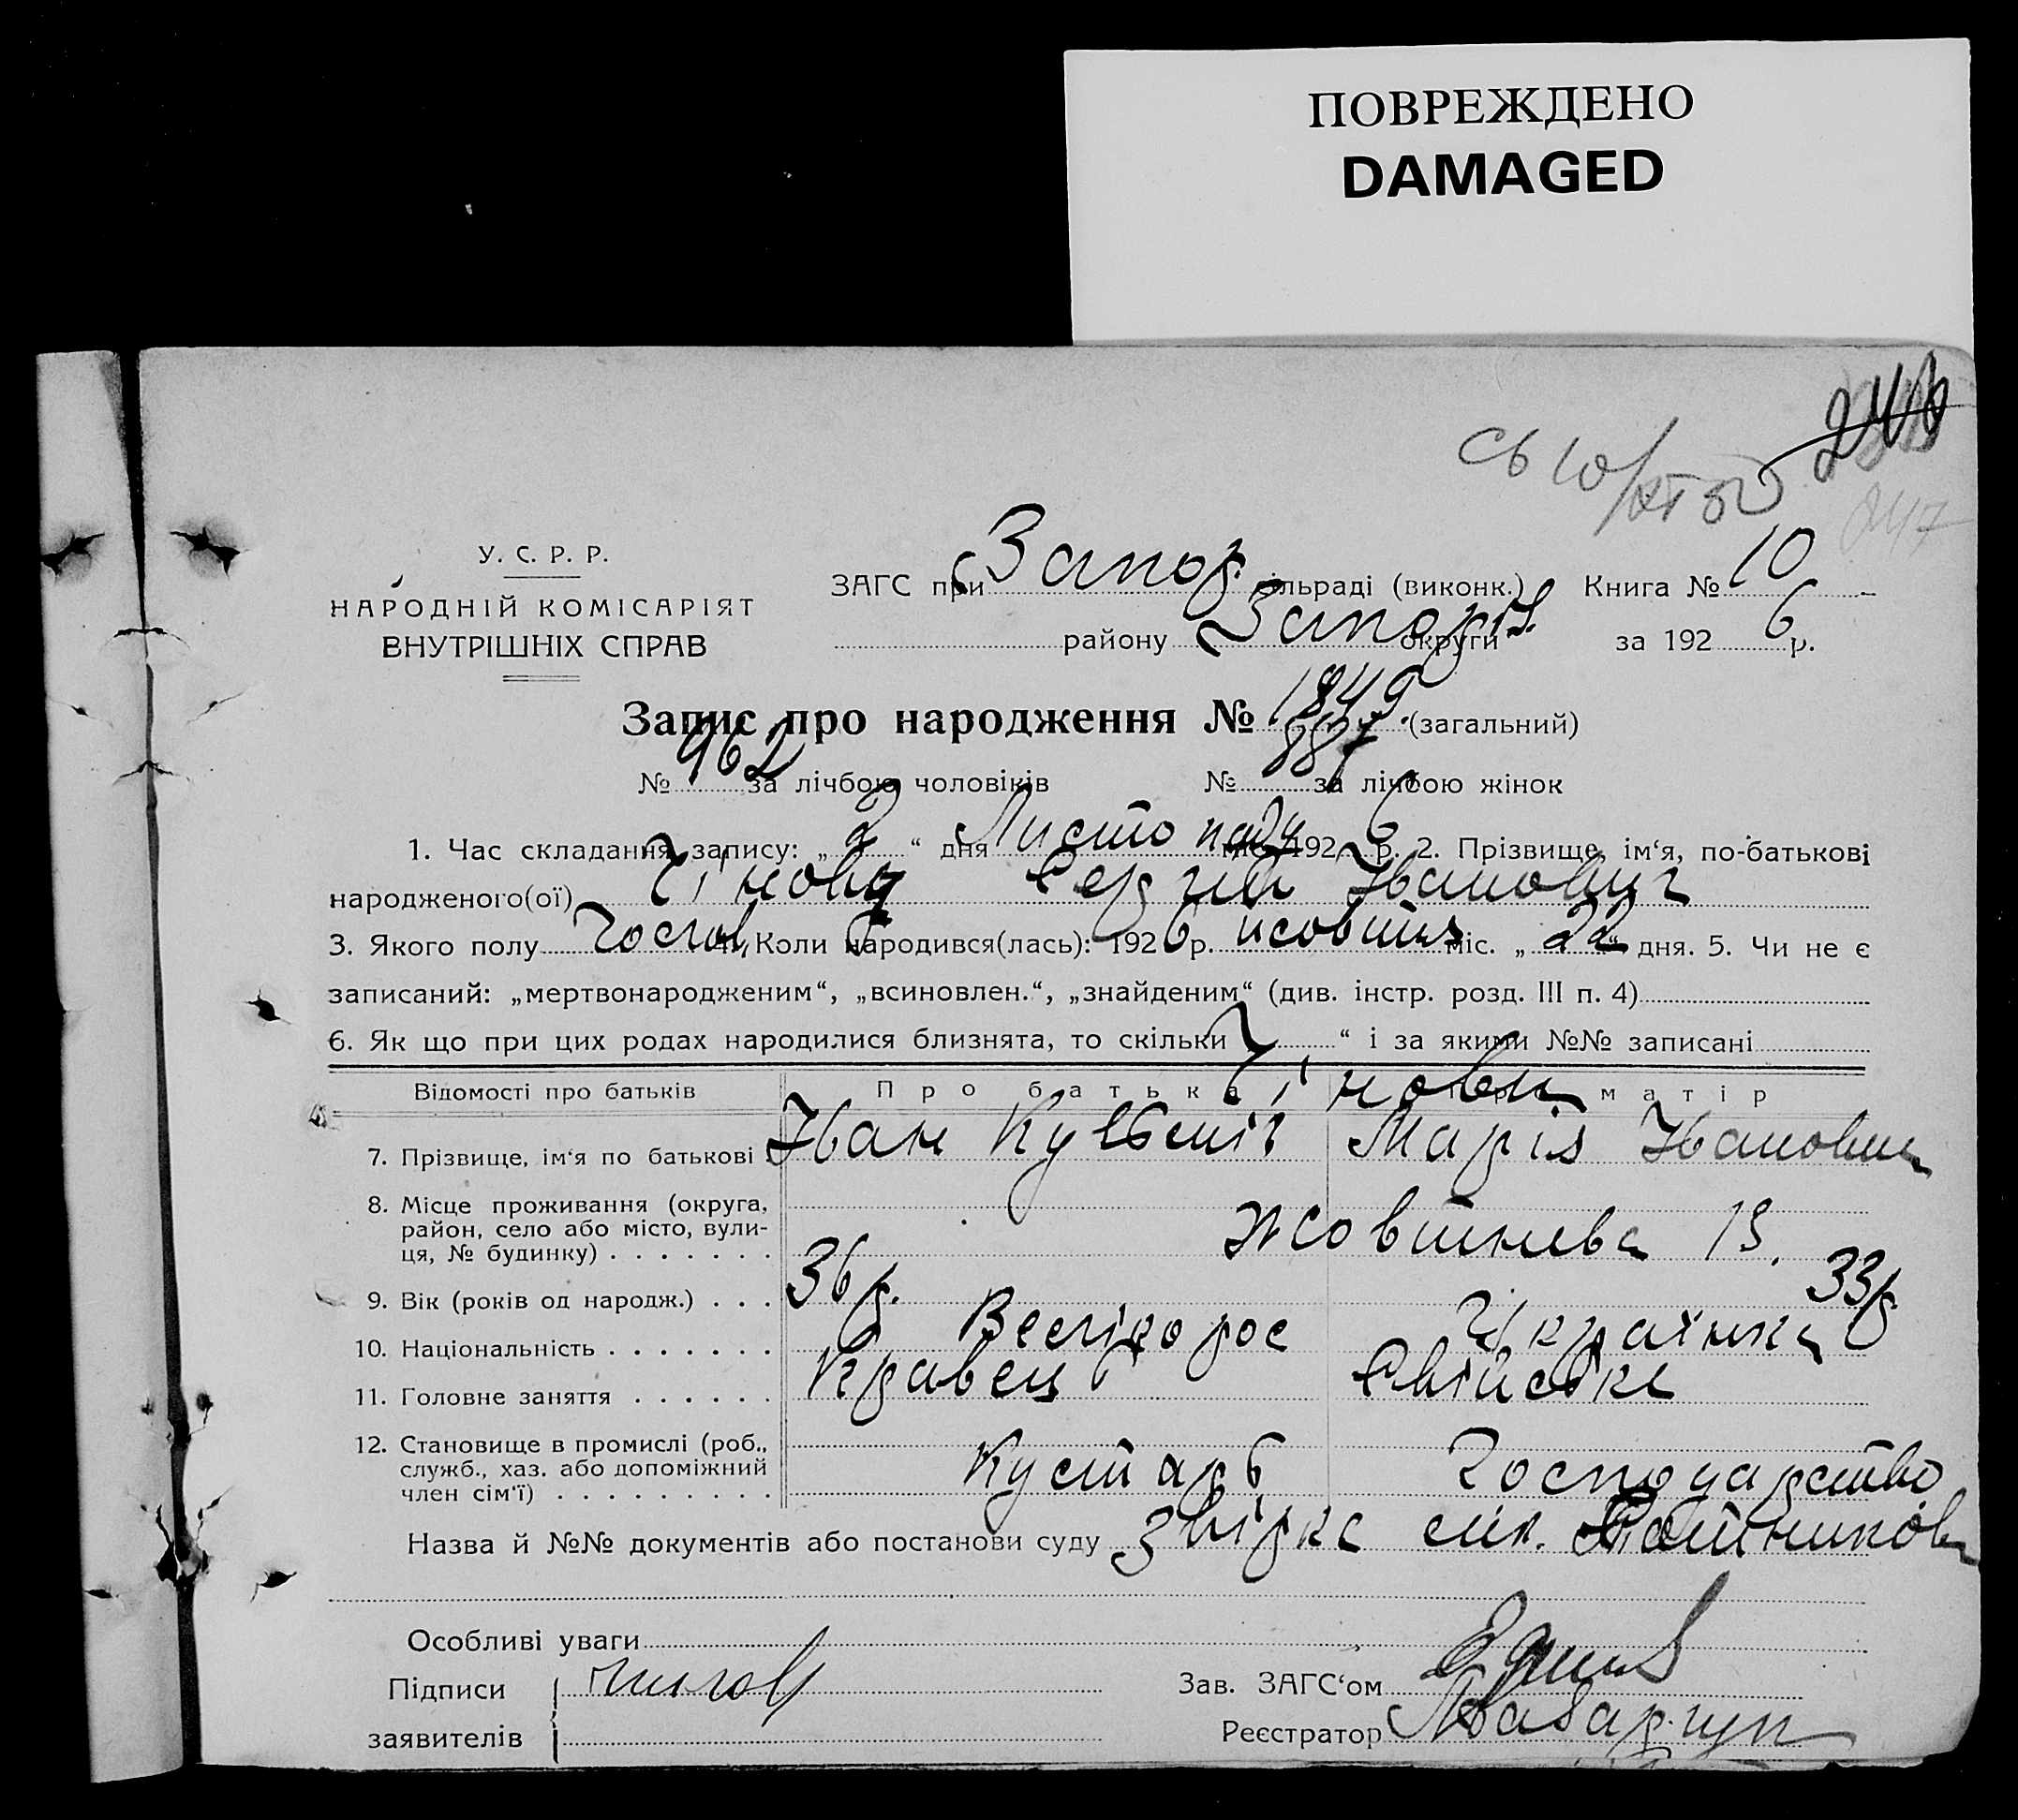 ПОВРЕЖДЕНО
DAMAGED
247
У. С. Р. Р.
НАРОДНІЙ КОМІСАРІЯТ
ВНУТРІШНІХ СПРАВ
ЗАГС при Запор. сільраді (виконк.) Книга № 10
району Запоріз. округи за 1926 р.
Запис про народження № 1849 (загальний)
№ 962 за лічбою чоловіків № 887 за лічбою жінок
1. Час складання запису: „2“ дня Листопаду міс. 1926 р. 2. Прізвище, ім‘я, по-батькові
народженого(ої) Сергій Іванович
3. Якого полу 4. Коли народився(лась): 1926 р. жовтня міс. „22“ дня. 5. Чи не є
записаний: „мертвонародженим“, „всиновлен.“, „знайденим“ (див. інстр. розд. III п. 4)
6. Як що при цих родах народилися близнята, то скільки “ і за якими №№ записані
Відомості про батьків Про батька Про матір
7. Прізвище, ім‘я по батькові Іван Марія Івановна
8. Місце проживання (округа,
район, село або місто, вули-
ця, № будинку) . . . . . . . Жовтнева
9. Вік (років од народж.) . . . 36 р. 33 р.
10. Національність . . . . . . . Велікорос Українка
11. Головне заняття . . . . . . Кравець
12. Становище в промислі (роб.,
служб., хаз. або допоміжний
член сім‘ї) . . . . . . . . . Кустарь Господарство
Назва й №№ документів або постанови суду
Особливі уваги
Підписи Зав. ЗАГС‘ом
заявителів Реєстратор